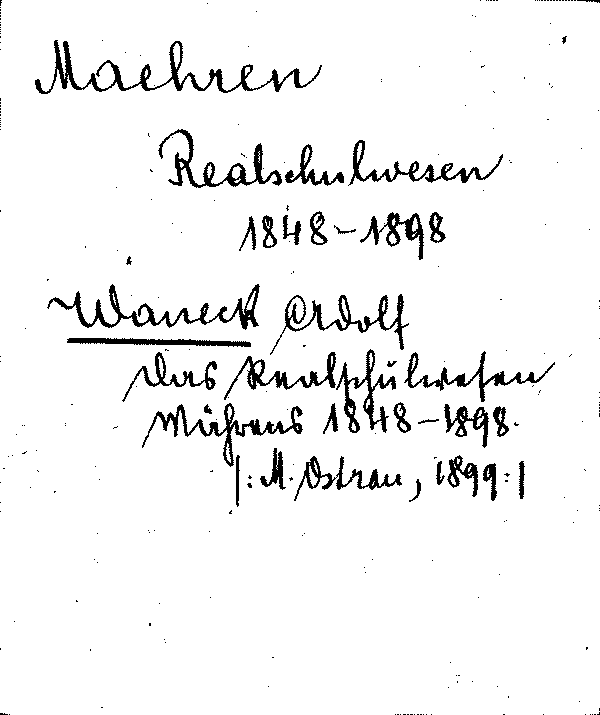 Maehren
Realschulwesen
1848-1898
Waneck Adolf
Das Realschulwesen
Mährens 1848-1898.
|: M. Ostrau, 1899 :|